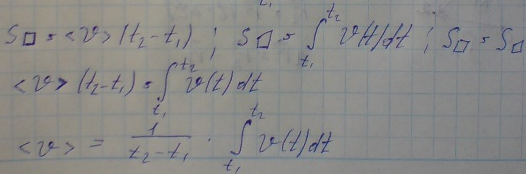 S□ = <v> (t₂-t₁) ; S□ = ∫ₜ₁ᵗ² v(t)dt ; S□ = S□
<v> (t₂-t₁) = ∫ₜ₁ᵗ² v(t)dt
<v> = 1/(t₂-t₁) · ∫ₜ₁ᵗ² v(t)dt